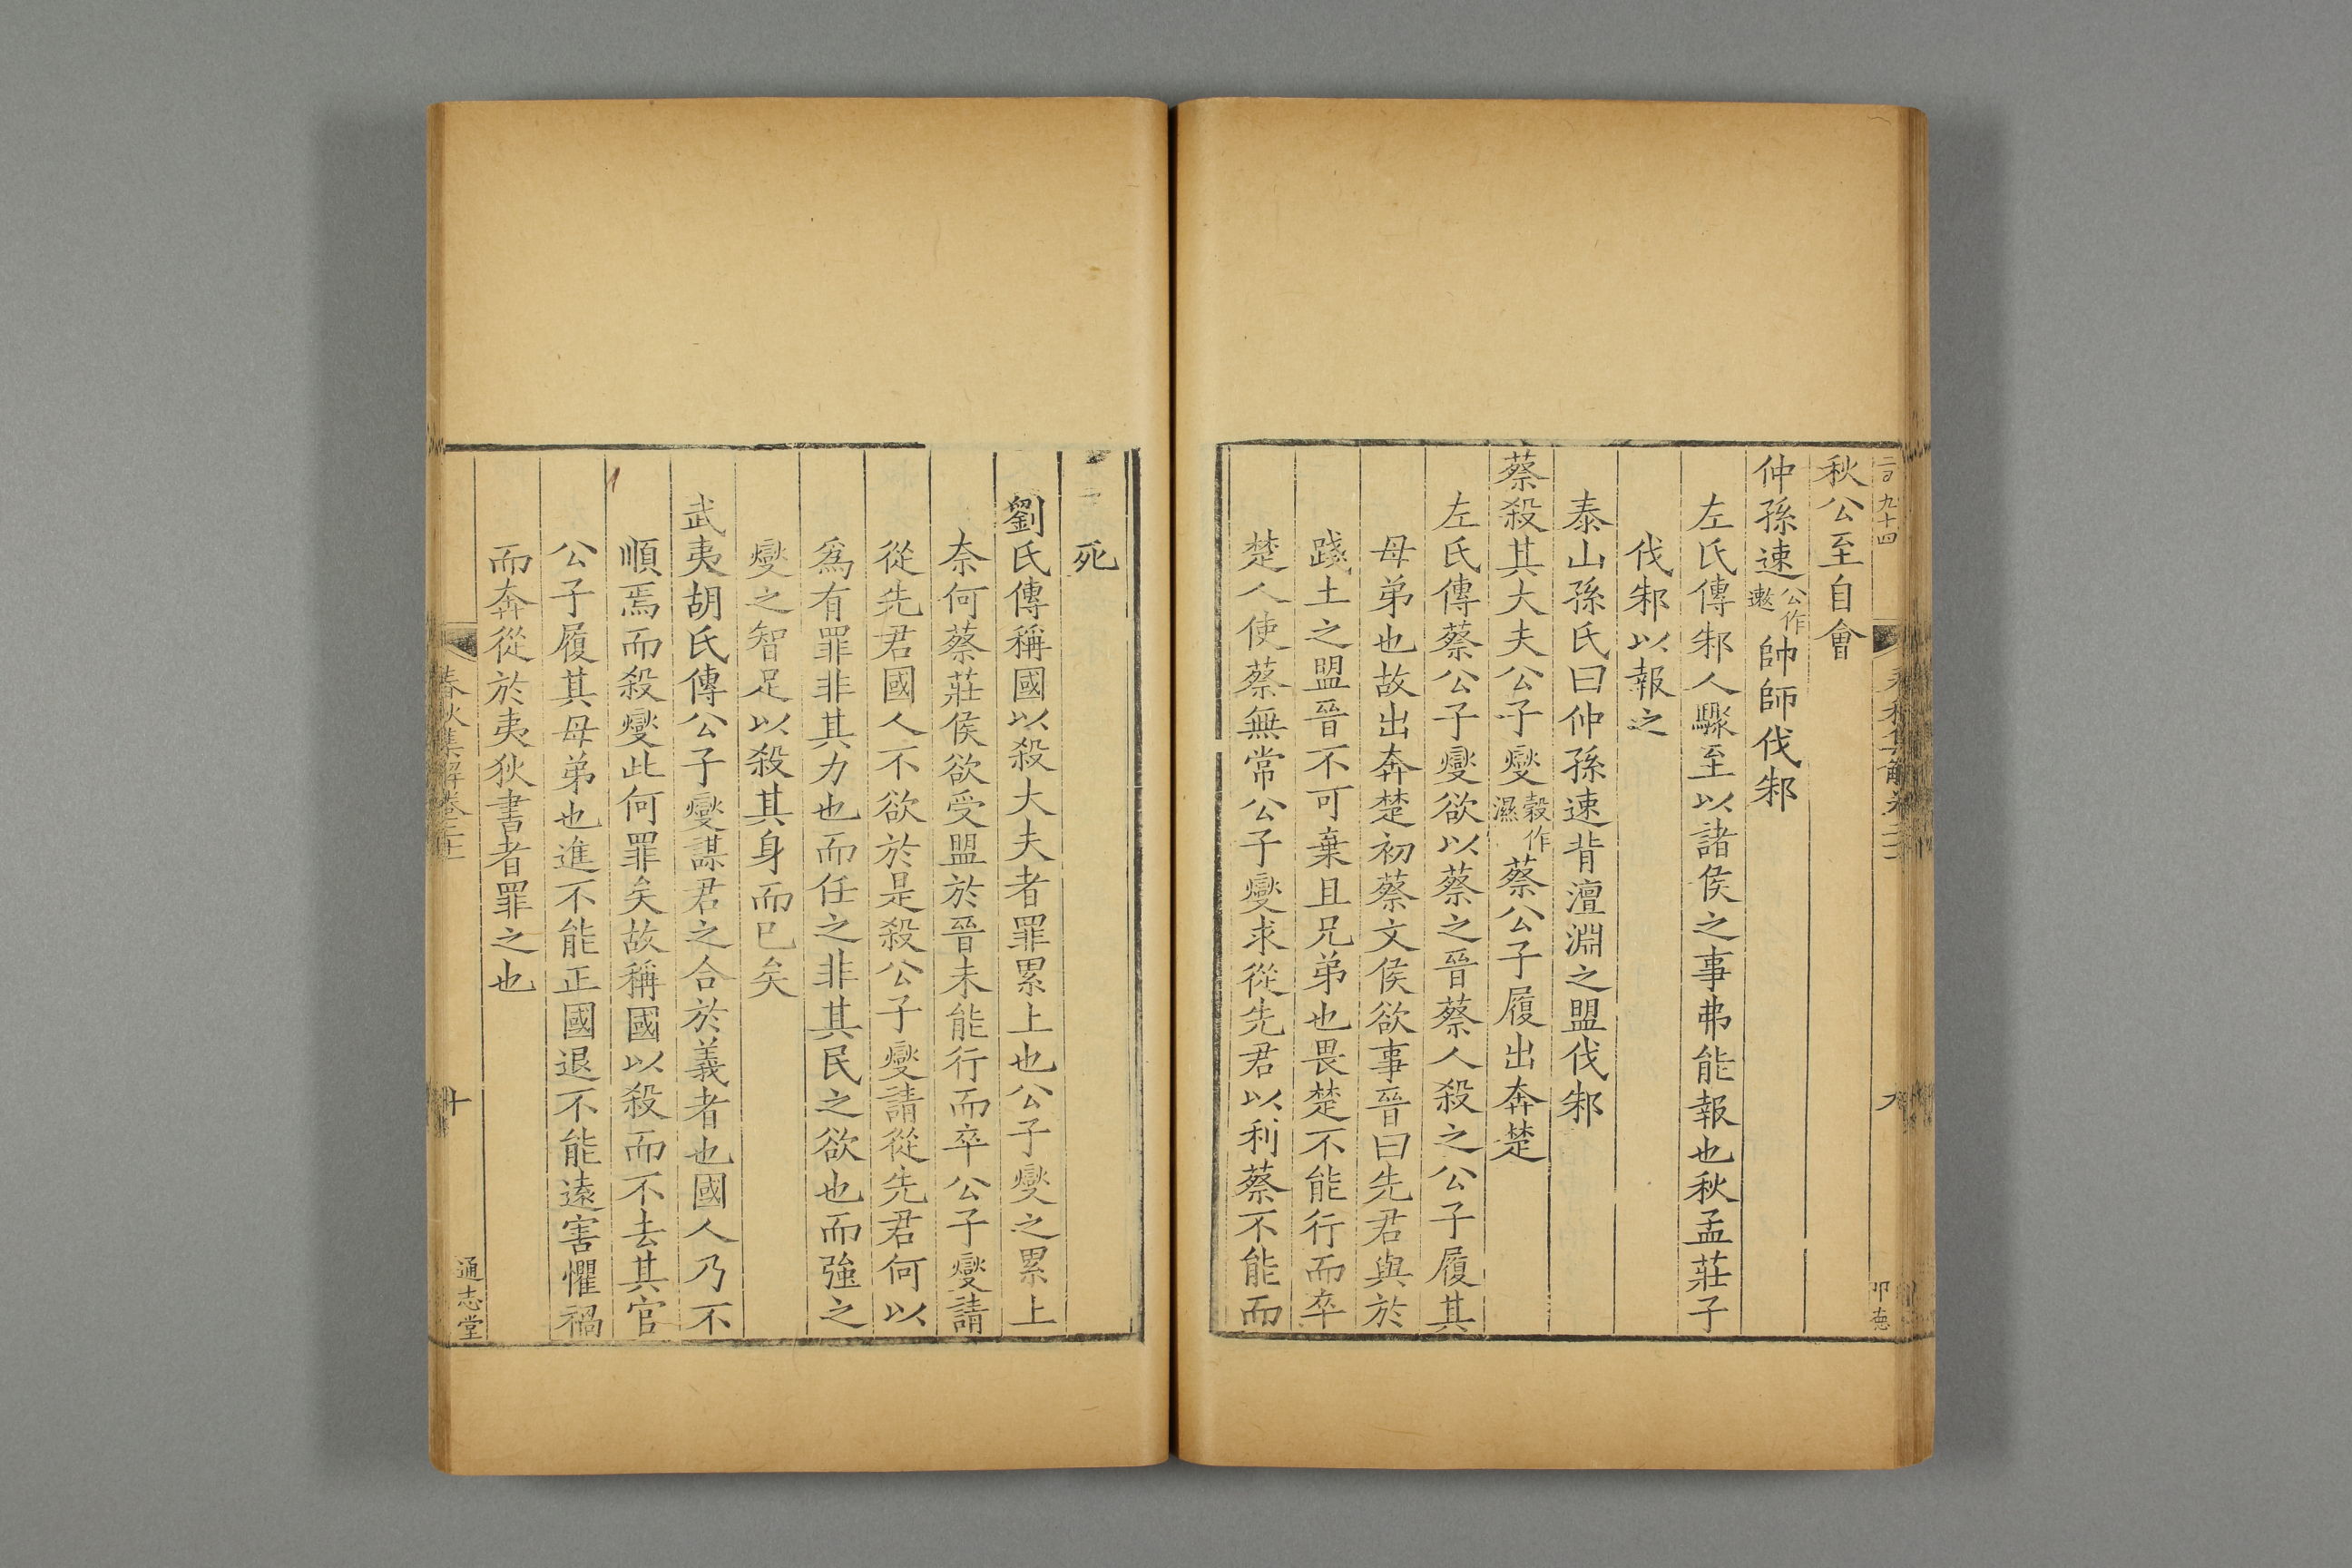 秋公至自會
仲孫速公作遬帥師伐邾
左氏傳邾人驟至以諸侯之事弗能報也秋孟莊子
伐邾以報之
泰山孫氏曰仲孫速背澶淵之盟伐邾
蔡殺其大夫公子燮穀作濕蔡公子履出奔楚
左氏傳蔡公子燮欲以蔡之晉蔡人殺之公子履其
母弟也故出奔楚初蔡文侯欲事晉曰先君與於
踐土之盟晉不可棄且兄弟也畏楚不能行而卒
楚人使蔡無常公子燮求從先君以利蔡不能而
死
劉氏傳稱國以殺大夫者罪累上也公子燮之累上
奈何蔡莊侯欲受盟於晉未能行而卒公子燮請
從先君國人不欲於是殺公子燮請從先君何以
爲有罪非其力也而任之非其民之欲也而強之
燮之智足以殺其身而已矣
武夷胡氏傳公子燮謀君之合於義者也國人乃不
順焉而殺燮此何罪矣故稱國以殺而不去其官
公子履其母弟也進不能正國退不能遠害懼禍
而奔從於夷狄書者罪之也
春秋集解卷二十
十
通志堂